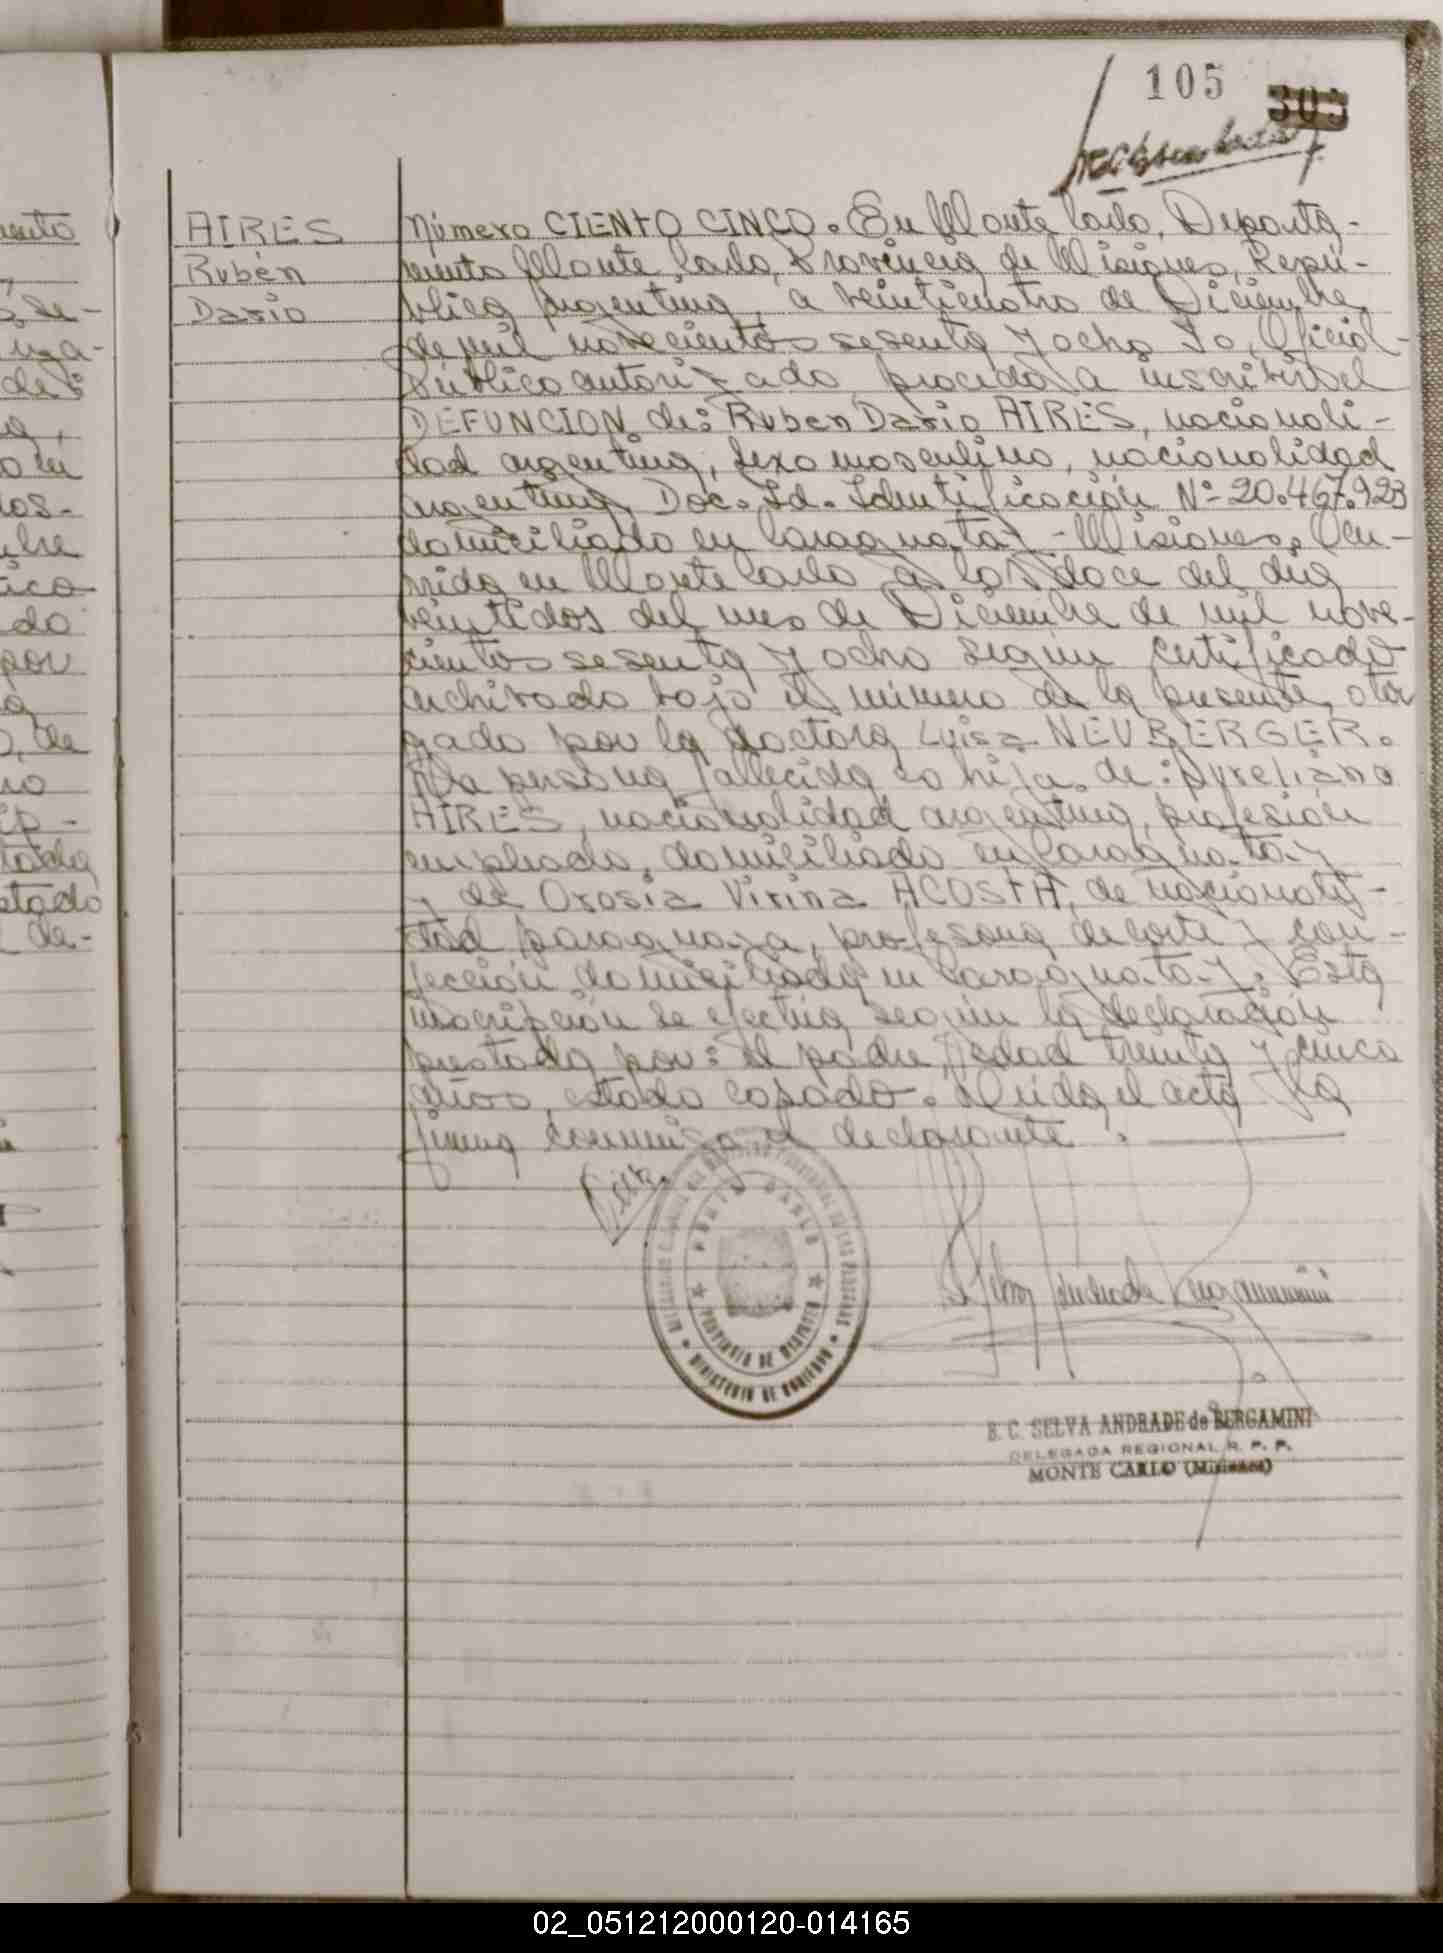 105
305
AIRES
Rubén
Dario
Número CIENTO CINCO. En Monte Carlo, Departa-
mento Monte Carlo, Provincia de Misiones, Repú-
blica Argentina, a veinticuatro de Diciembre
de mil novecientos sesenta y ocho Yo, Oficial
Público autorizado, procedo a inscribir el
DEFUNCION de: Ruben Dario AIRES, nacionali-
dad argentina, sexo masculino, nacionalidad
argentina, Doc. Id. Identificación Nº 20.467.923
domiciliado en Caraguatay - Misiones. Ocu-
rrida en Monte Carlo a las doce del dia
veintidos del mes de Diciembre de mil nove-
cientos sesenta y ocho según certificado
archivado bajo el número de la presente, otor
gado por la doctora Luisa NEUBERGER.
La persona fallecida es hija de: Aureliano
AIRES, nacionalidad argentina, profesión
empleado, domiciliado en Caraguatay
y de Orosia Virina ACOSTA, de nacionali-
dad paraguaya, profesora de corte y con-
fección domiciliada en Caraguatay. Esta
inscripción se efectúa según la declaración
prestada por: el padre, edad treinta y cinco
años, estado casado. Leida el acta la
firma conmigo el declarante.
MONTE CARLO
PROVINCIA DE MISIONES
MINISTERIO DE GOBIERNO
B. C. SELVA ANDRADE de BERGAMINI
DELEGADA REGIONAL R. P. P.
MONTE CARLO (Misiones)
02_051212000120-014165